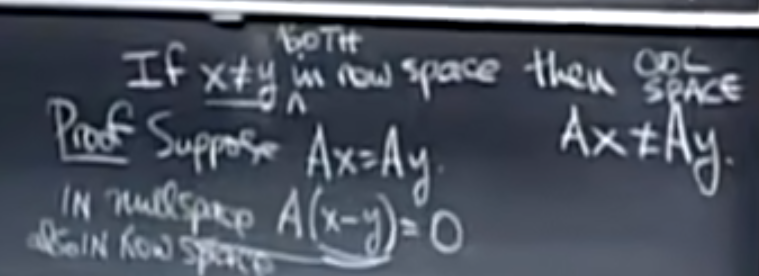 If x≠y BOTH in row space then COL SPACE
Ax≠Ay.
Proof Suppose Ax=Ay.
IN nullspace A(x-y)=0
also IN row space